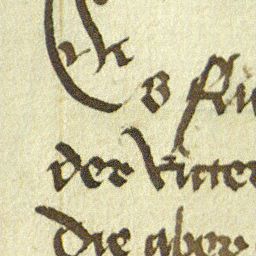 Es flu
der ritter
die aber